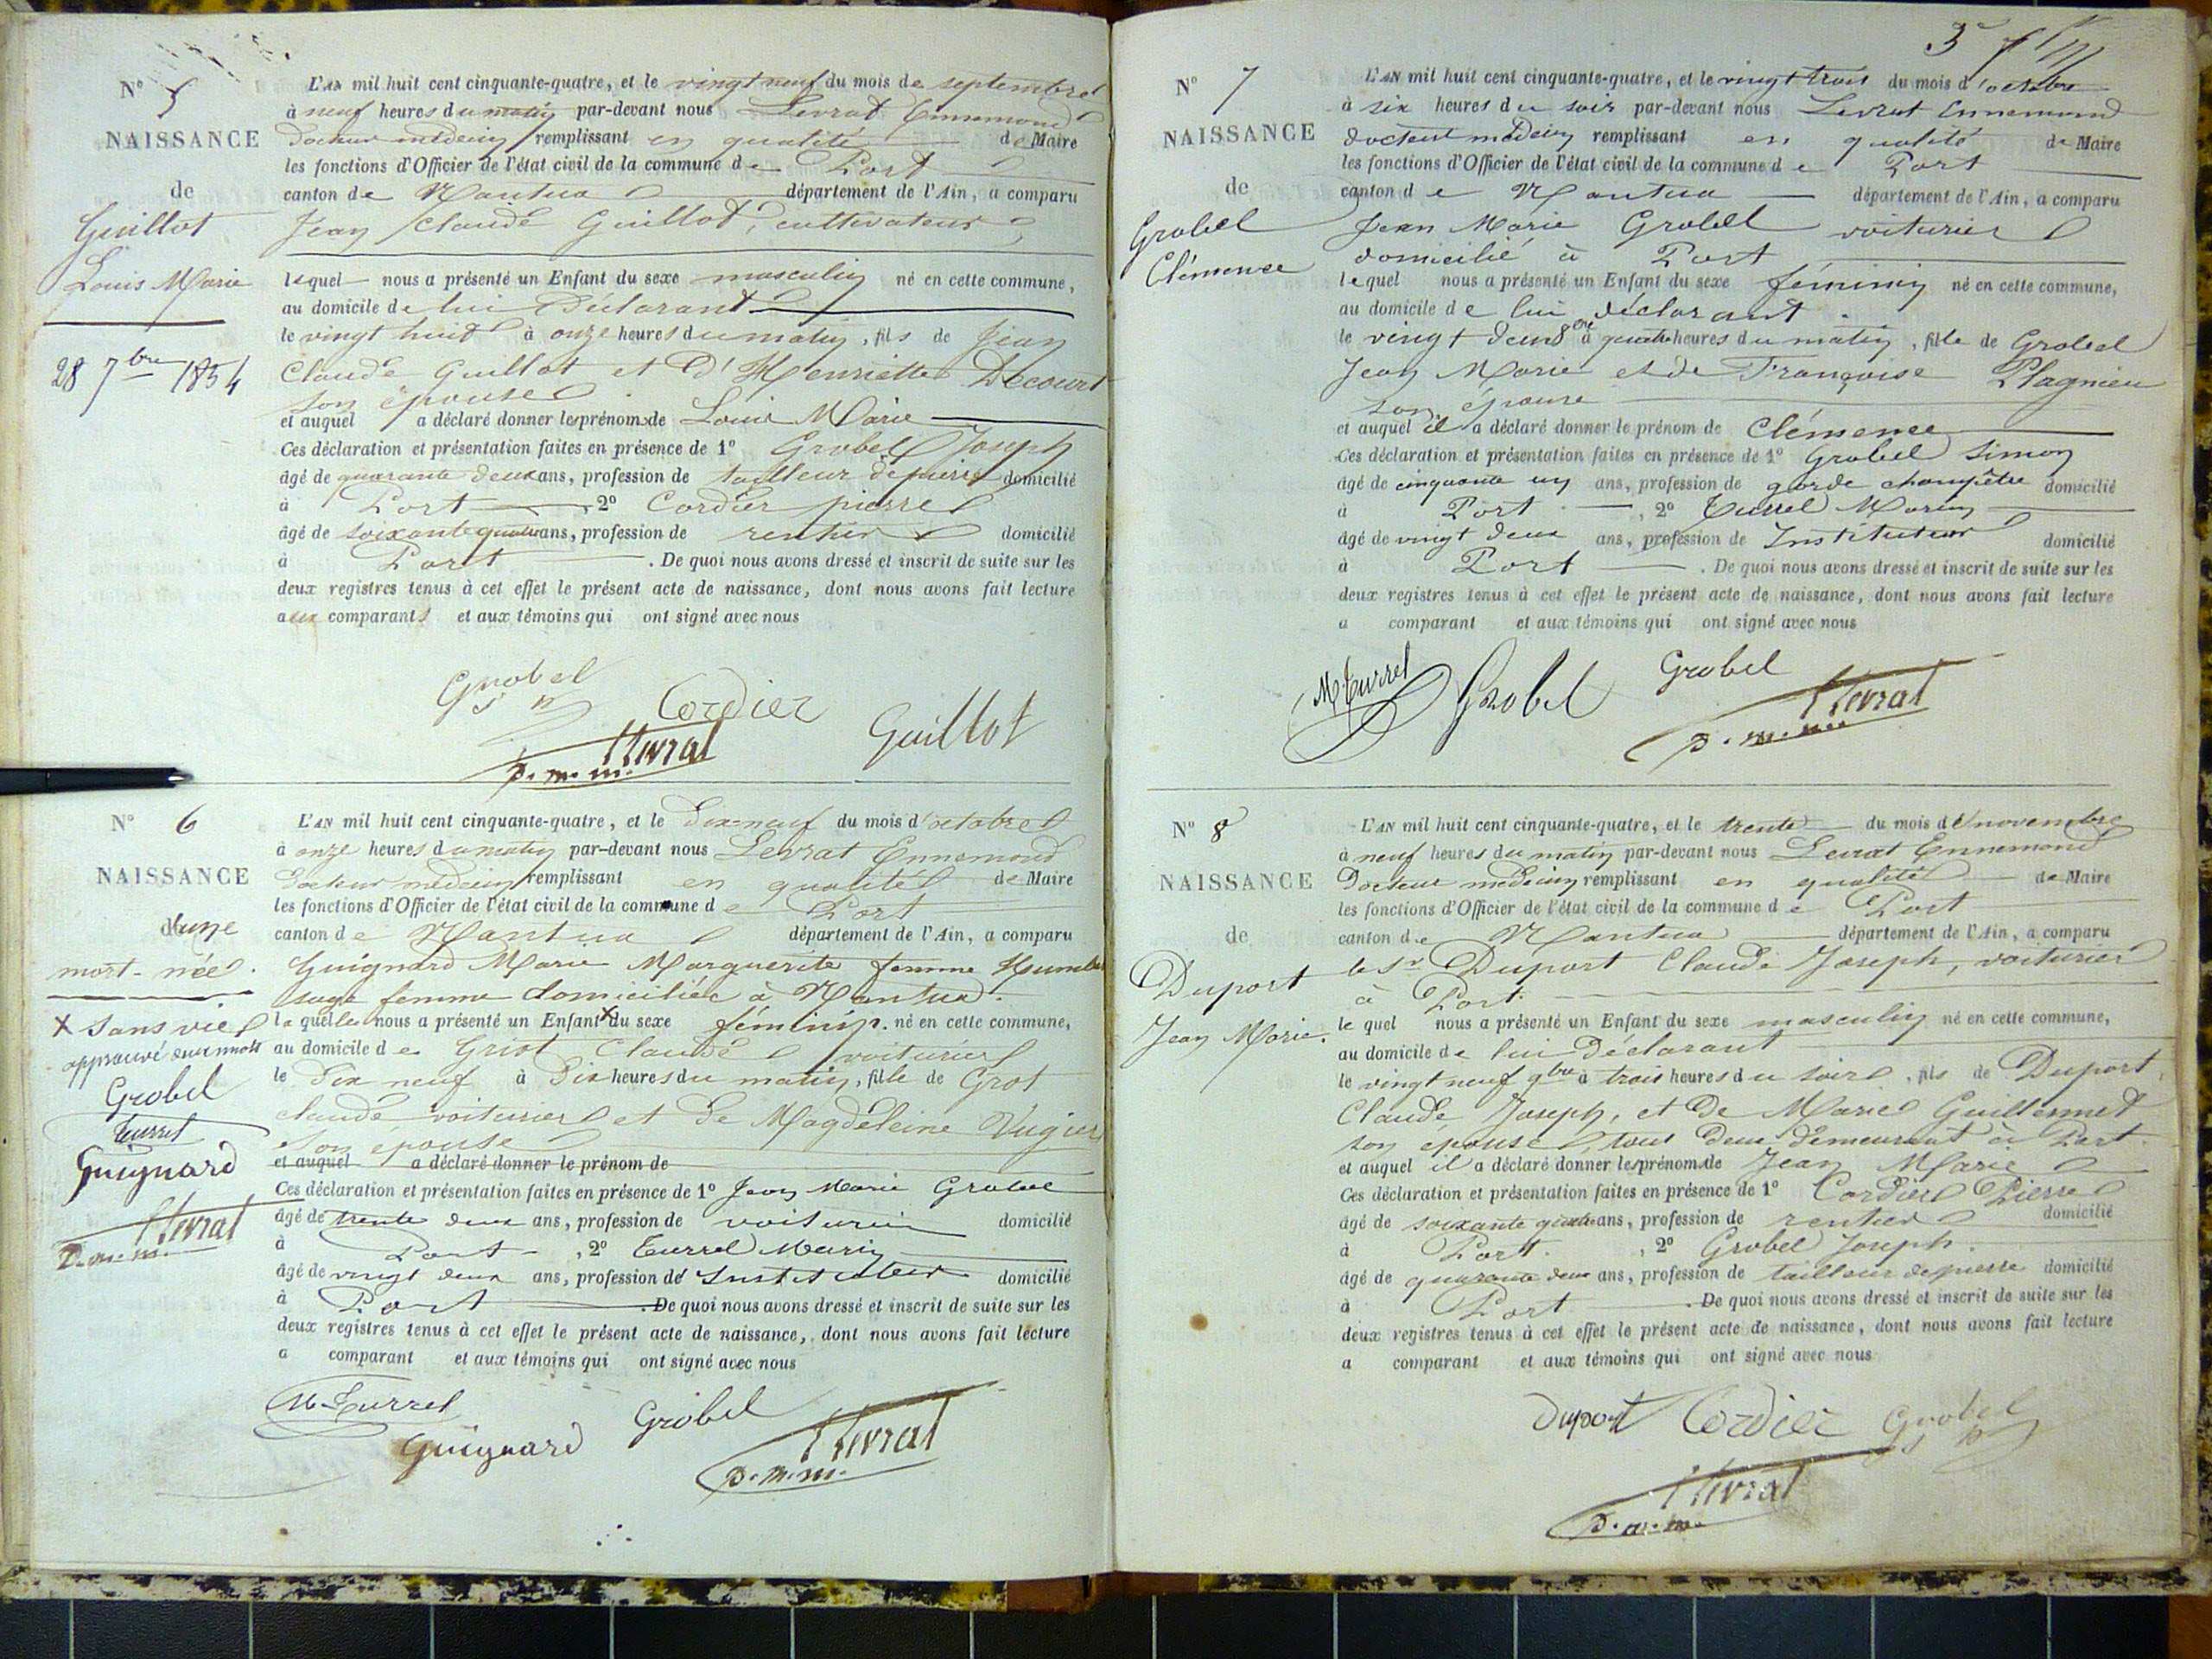 N° 5
NAISSANCE
de
Guillot
Louis Marie
28 7bre 1854
L'AN mil huit cent cinquante-quatre, et le vingt neuf du mois de septembre
à neuf heures du matin par-devant nous Levrat Ennemond
docteur médecin remplissant en qualité de Maire
les fonctions d'Officier de l'état civil de la commune de Port
canton de Nantua département de l'Ain, a comparu
Jean Claude Guillot, cultivateur,
lequel nous a présenté un Enfant du sexe masculin né en cette commune,
au domicile de lui Déclarant
le vingt huit à onze heures du matin, fils de Jean
Claude Guillot et d'Henriette Decourt
son épouse
et auquel a déclaré donner les prénoms de Louis Marie
Ces déclaration et présentation faites en présence de 1° Grobel Joseph
âgé de quarante deux ans, profession de tailleur de pierre domicilié
à Port, 2° Cordier pierre
âgé de soixante quatre ans, profession de rentier domicilié
à Port. De quoi nous avons dressé et inscrit de suite sur les
deux registres tenus à cet effet le présent acte de naissance, dont nous avons fait lecture
aux comparants et aux témoins qui ont signé avec nous
Grobel
Cordier
Guillot
Levrat
d. m. m.
N° 6
NAISSANCE
d'une
mort-née.
X sans vie
approuvé deux mots
Grobel
Turrel
Guignard
Levrat
D. m. m.
L'AN mil huit cent cinquante-quatre, et le Dix-neuf du mois d'octobre
à onze heures du matin par-devant nous Levrat Ennemond
Docteur médecin remplissant en qualité de Maire
les fonctions d'Officier de l'état civil de la commune de Port
canton de Nantua département de l'Ain, a comparu
Guignard Marie Marguerite femme
sage femme domiciliée à Nantua.
laquelle nous a présenté un Enfant X du sexe féminin. né en cette commune,
au domicile de Griot Claude voiturier
le Dix neuf à Dix heures du matin, fille de Grot
claude voiturier et de Magdeleine Vugier
son épouse
et auquel a déclaré donner le prénom de
Ces déclaration et présentation faites en présence de 1° Jean Marie Grobel
âgé de trente deux ans, profession de voiturier domicilié
à Port, 2° Turrel Marin
âgé de vingt deux ans, profession de Instituteur domicilié
à Port. De quoi nous avons dressé et inscrit de suite sur les
deux registres tenus à cet effet le présent acte de naissance, dont nous avons fait lecture
a comparant et aux témoins qui ont signé avec nous
M Turrel
Guignard
Grobel
Levrat
d. m. m.
3
N° 7
NAISSANCE
de
Grobel
Clémence
L'AN mil huit cent cinquante-quatre, et le vingt trois du mois d'octobre
à six heures du soir par-devant nous Levrat Ennemond
docteur médecin remplissant en qualité de Maire
les fonctions d'Officier de l'état civil de la commune de Port
canton de Nantua département de l'Ain, a comparu
Jean Marie Grobel voiturier
domicilié à Port
lequel nous a présenté un Enfant du sexe féminin né en cette commune,
au domicile de lui déclarant.
le vingt deux 8bre à quatre heures du matin, fille de Grobel
Jean Marie et de Françoise Plagnieu
son épouse
et auquel il a déclaré donner le prénom de Clémence
Ces déclaration et présentation faites en présence de 1° Grobel Simon
âgé de cinquante un ans, profession de garde champêtre domicilié
à Port, 2° Turrel Marin
âgé de vingt deux ans, profession de Instituteur domicilié
à Port. De quoi nous avons dressé et inscrit de suite sur les
deux registres tenus à cet effet le présent acte de naissance, dont nous avons fait lecture
a comparant et aux témoins qui ont signé avec nous
M Turrel
Grobel
Grobel
Levrat
d. m. m.
N° 8
NAISSANCE
de
Duport
Jean Marie.
L'AN mil huit cent cinquante-quatre, et le trente du mois de novembre
à neuf heures du matin par-devant nous Levrat Ennemond
Docteur médecin remplissant en qualité de Maire
les fonctions d'Officier de l'état civil de la commune de Port
canton de Nantua département de l'Ain, a comparu
le Sr Duport Claude Joseph, voiturier
à Port.
lequel nous a présenté un Enfant du sexe masculin né en cette commune,
au domicile de lui Déclarant
le vingt neuf 9bre à trois heures du soir, fils de Duport,
Claude Joseph, et de Marie Guillermet
son épouse, tous deux demeurant à Port.
et auquel il a déclaré donner les prénoms de Jean Marie
Ces déclaration et présentation faites en présence de 1° Cordier Pierre
âgé de soixante quatre ans, profession de rentier domicilié
à Port., 2° Grobel Joseph.
âgé de quarante deux ans, profession de tailleur de pierre domicilié
à Port. De quoi nous avons dressé et inscrit de suite sur les
deux registres tenus à cet effet le présent acte de naissance, dont nous avons fait lecture
a comparant et aux témoins qui ont signé avec nous
Duport
Cordier
Grobel
Levrat
d. m. m.